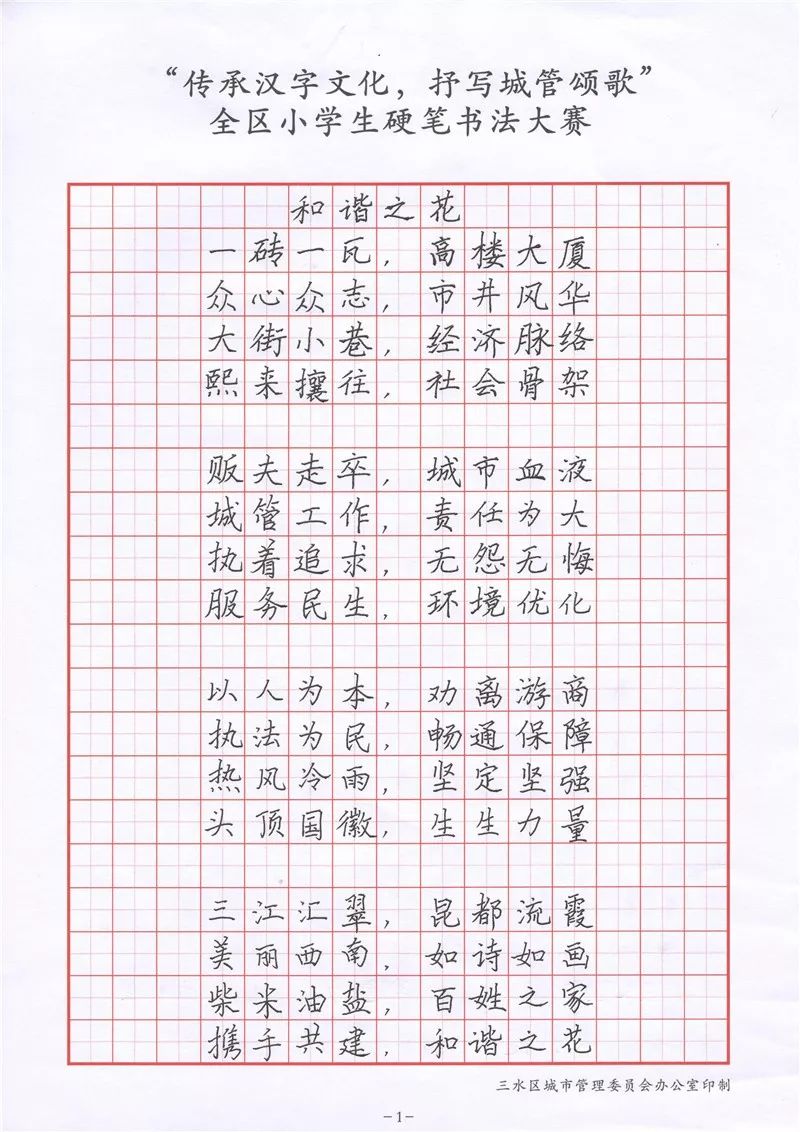 “传承汉字文化，抒写城管颂歌”
全区小学生硬笔书法大赛
和谐之花
一砖一瓦，高楼大厦
众心众志，市井风华
大街小巷，经济脉络
熙来攘往，社会骨架
贩夫走卒，城市血液
城管工作，责任为大
执着追求，无怨无悔
服务民生，环境优化
以人为本，劝离游商
执法为民，畅通保障
热风冷雨，坚定坚强
头顶国徽，生生力量
三江汇翠，昆都流霞
美丽西南，如诗如画
柴米油盐，百姓之家
携手共建，和谐之花
三水区城市管理委员会办公室印制
-1-